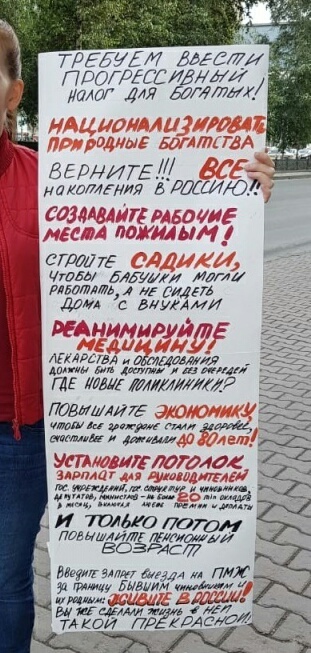 ТРЕБУЕМ ВВЕСТИ
ПРОГРЕССИВНЫЙ
НАЛОГ ДЛЯ БОГАТЫХ!
НАЦИОНАЛИЗИРОВАТЬ
ПРИРОДНЫЕ БОГАТСТВА
ВЕРНИТЕ!!! ВСЕ
НАКОПЛЕНИЯ В РОССИЮ!!
СОЗДАВАЙТЕ РАБОЧИЕ
МЕСТА ПОЖИЛЫМ!
СТРОЙТЕ САДИКИ,
ЧТОБЫ БАБУШКИ МОГЛИ
РАБОТАТЬ, А НЕ СИДЕТЬ
ДОМА С ВНУКАМИ
РЕАНИМИРУЙТЕ
МЕДИЦИНУ!
ЛЕКАРСТВА И ОБСЛЕДОВАНИЯ
ДОЛЖНЫ БЫТЬ ДОСТУПНЫ И БЕЗ ОЧЕРЕДЕЙ
ГДЕ НОВЫЕ ПОЛИКЛИНИКИ?
ПОВЫШАЙТЕ ЭКОНОМИКУ,
ЧТОБЫ ВСЕ ГРАЖДАНЕ СТАЛИ ЗДОРОВЕЕ,
СЧАСТЛИВЕЕ И ДОЖИВАЛИ ДО 80 ЛЕТ!
УСТАНОВИТЕ ПОТОЛОК
ЗАРПЛАТ ДЛЯ РУКОВОДИТЕЛЕЙ
ГОС. УЧРЕЖДЕНИЙ, ГОС. СТРУКТУР И ЧИНОВНИКОВ,
ДЕПУТАТОВ, МИНИСТРОВ - НЕ БОЛЕЕ 20 ОКЛАДОВ
В МЕСЯЦ, ВКЛЮЧАЯ ЛЮБЫЕ ПРЕМИИ И ДОПЛАТЫ
И ТОЛЬКО ПОТОМ
ПОВЫШАЙТЕ ПЕНСИОННЫЙ
ВОЗРАСТ
ВВЕДИТЕ ЗАПРЕТ ВЫЕЗДА НА ПМЖ
ЗА ГРАНИЦУ БЫВШИМ ЧИНОВНИКАМ И
ИХ РОДНЫМ: ЖИВИТЕ В РОССИИ!
ВЫ ЖЕ СДЕЛАЛИ ЖИЗНЬ В НЕЙ
ТАКОЙ ПРЕКРАСНОЙ.